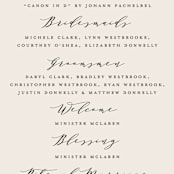 "CANON IN D" BY JOHANN PACHELBEL
Bridesmaids
MICHELE CLARK, LYNN WESTBROOKS,
COURTNEY O'SHEA, ELIZABETH DONNELLY
Groomsmen
DARYL CLARK, BRADLEY WESTBROOK,
CHRISTOPHER WESTBROOK, RYAN WESTBROOK,
JUSTIN DONNELLY & MATTHEW DONNELLY
Welcome
MINISTER MCLAREN
Blessing
MINISTER MCLAREN